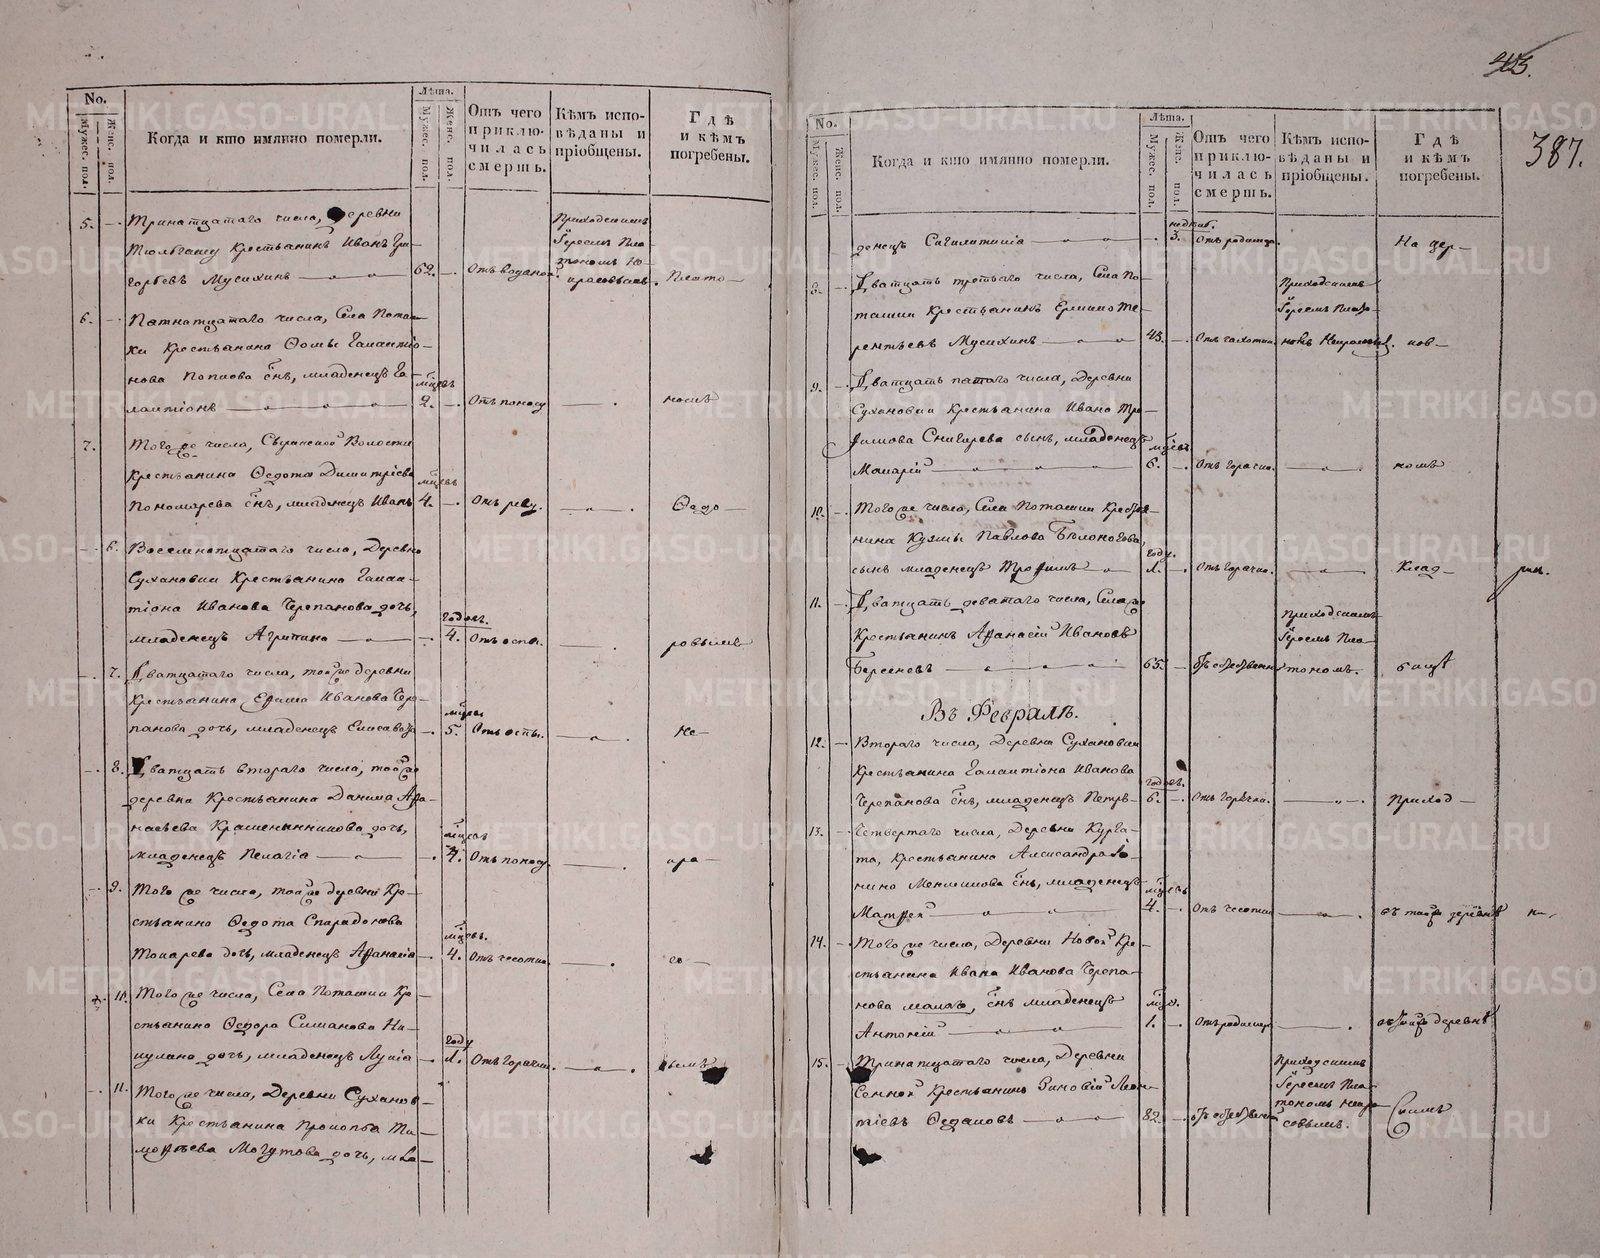 No.
Мужес. пол.
Женс. пол.
Когда и кто имянно померли.
Лѣта.
Мужес. пол.
Женс. пол.
Отъ чего приклю-чилась смерть.
Кѣмъ испо-вѣданы и пріобщены.
Гдѣ и кѣмъ погребены.
5. Тринатцатаго числа, деревни
крестьянинъ Иванъ Гри-
горьевъ Мусихинъ 62. Отъ водяной
Приходскимъ Іереемъ Пла-
тономъ Не-
красовымъ. Плато-
6. Пятнатцатаго числа, Села Поташ-
ки Крестьянина Ѳомы Галактіо-
нова Попкова снъ, младенецъ Га-
лактіонъ мцовъ 2. Отъ поносу номъ
7. Того же числа, Волости
Крестьянина Ѳедота Димитріева
Пономарева снъ, младенецъ Иванъ мцовъ 4. Отъ резу. Ѳедо-
6. Восемнатцатаго числа, Деревни
Сухановки Крестьянина Галак-
тіона Иванова Черепанова дочь,
младенецъ Агрипина годовъ. 4. Отъ оспы. ровымъ
7. Дватцатаго числа, тойже деревни
Крестьянина Ефима Иванова Чере-
панова дочь, младенецъ Елисавета 5. Отъ оспы. Не-
8. Дватцать втораго числа, тойже
деревни Крестьянина Данила Афа-
насьева Крашенинникова дочь,
младенецъ Пелагія мцовъ 4. Отъ поносу кра-
9. Того же числа, тойже деревни Кре-
стьянина Ѳедота Спиридонова
Токарева дочь, младенецъ Афанасія мцовъ. 4. Отъ чесотки со-
10. Того же числа, Села Поташки Кре-
стьянина Ѳедора Симанова Ни-
кулина дочь, младенецъ Лукія году 1. Отъ горячки. вымъ
11. Того же числа, Деревни Суханов-
ки Крестьянина Прокопья Ти-
мофеева Могутова дочь, мла-
387.
No.
Мужес. пол.
Женс. пол.
Когда и кто имянно померли.
Лѣта.
Мужес. пол.
Женс. пол.
Отъ чего приклю-чилась смерть.
Кѣмъ испо-вѣданы и пріобщены.
Гдѣ и кѣмъ погребены.
денецъ 3. Отъ родимца. На цер-
8. Дватцать третьяго числа, Села По-
ташки Крестьянинъ Ермила Те-
рентьевъ Мусихинъ 43. Отъ чахотки
Приходскимъ
Іереемъ Плато-
номъ Некрасовы. ков-
9. Дватцать пятаго числа, Деревни
Сухановки Крестьянина Ивана Тро-
фимова Снигирева сынъ, младенецъ
Макарій мцовъ 6. Отъ горячки. номъ
10. Того же числа, Села Поташки Крестья-
нина Кузмы Павлова Бѣлоногова,
сынъ младенецъ Трофимъ году. 1. Отъ горячки. Клад-
11. Дватцать девятаго числа, Села же
Крестьянинъ Афанасій Ивановъ
Берсеневъ 65.
Приходскимъ
Іереемъ Пла-
тономъ. бищѣ
Въ Февралѣ.
12. Втораго числа, Деревни Сухановки
Крестьянина Галактіона Иванова
Черепанова снъ, младенецъ Петръ годовъ. 6. Отъ горячки. Приход-
13. Четвертаго числа, Деревни Курга-
та, Крестьянина Александра
Меншикова снъ, младенецъ
Матфей мцовъ 4. Отъ чесотки въ той же деревнѣ
14. Того же числа, Деревни Новой Кре-
стьянина Ивана Иванова Черепа-
нова малаго, снъ младенецъ
Антоній 1. Отъ родимца въ той же деревнѣ
15. Тринатцатаго числа, Деревни
Сенной Крестьянинъ Зиновій Леон-
тіевъ Ѳедаковъ 82.
Приходскимъ
Іереемъ Пла-
тономъ Некра-
совымъ. Симъ
METRIKI.GASO-URAL.RU